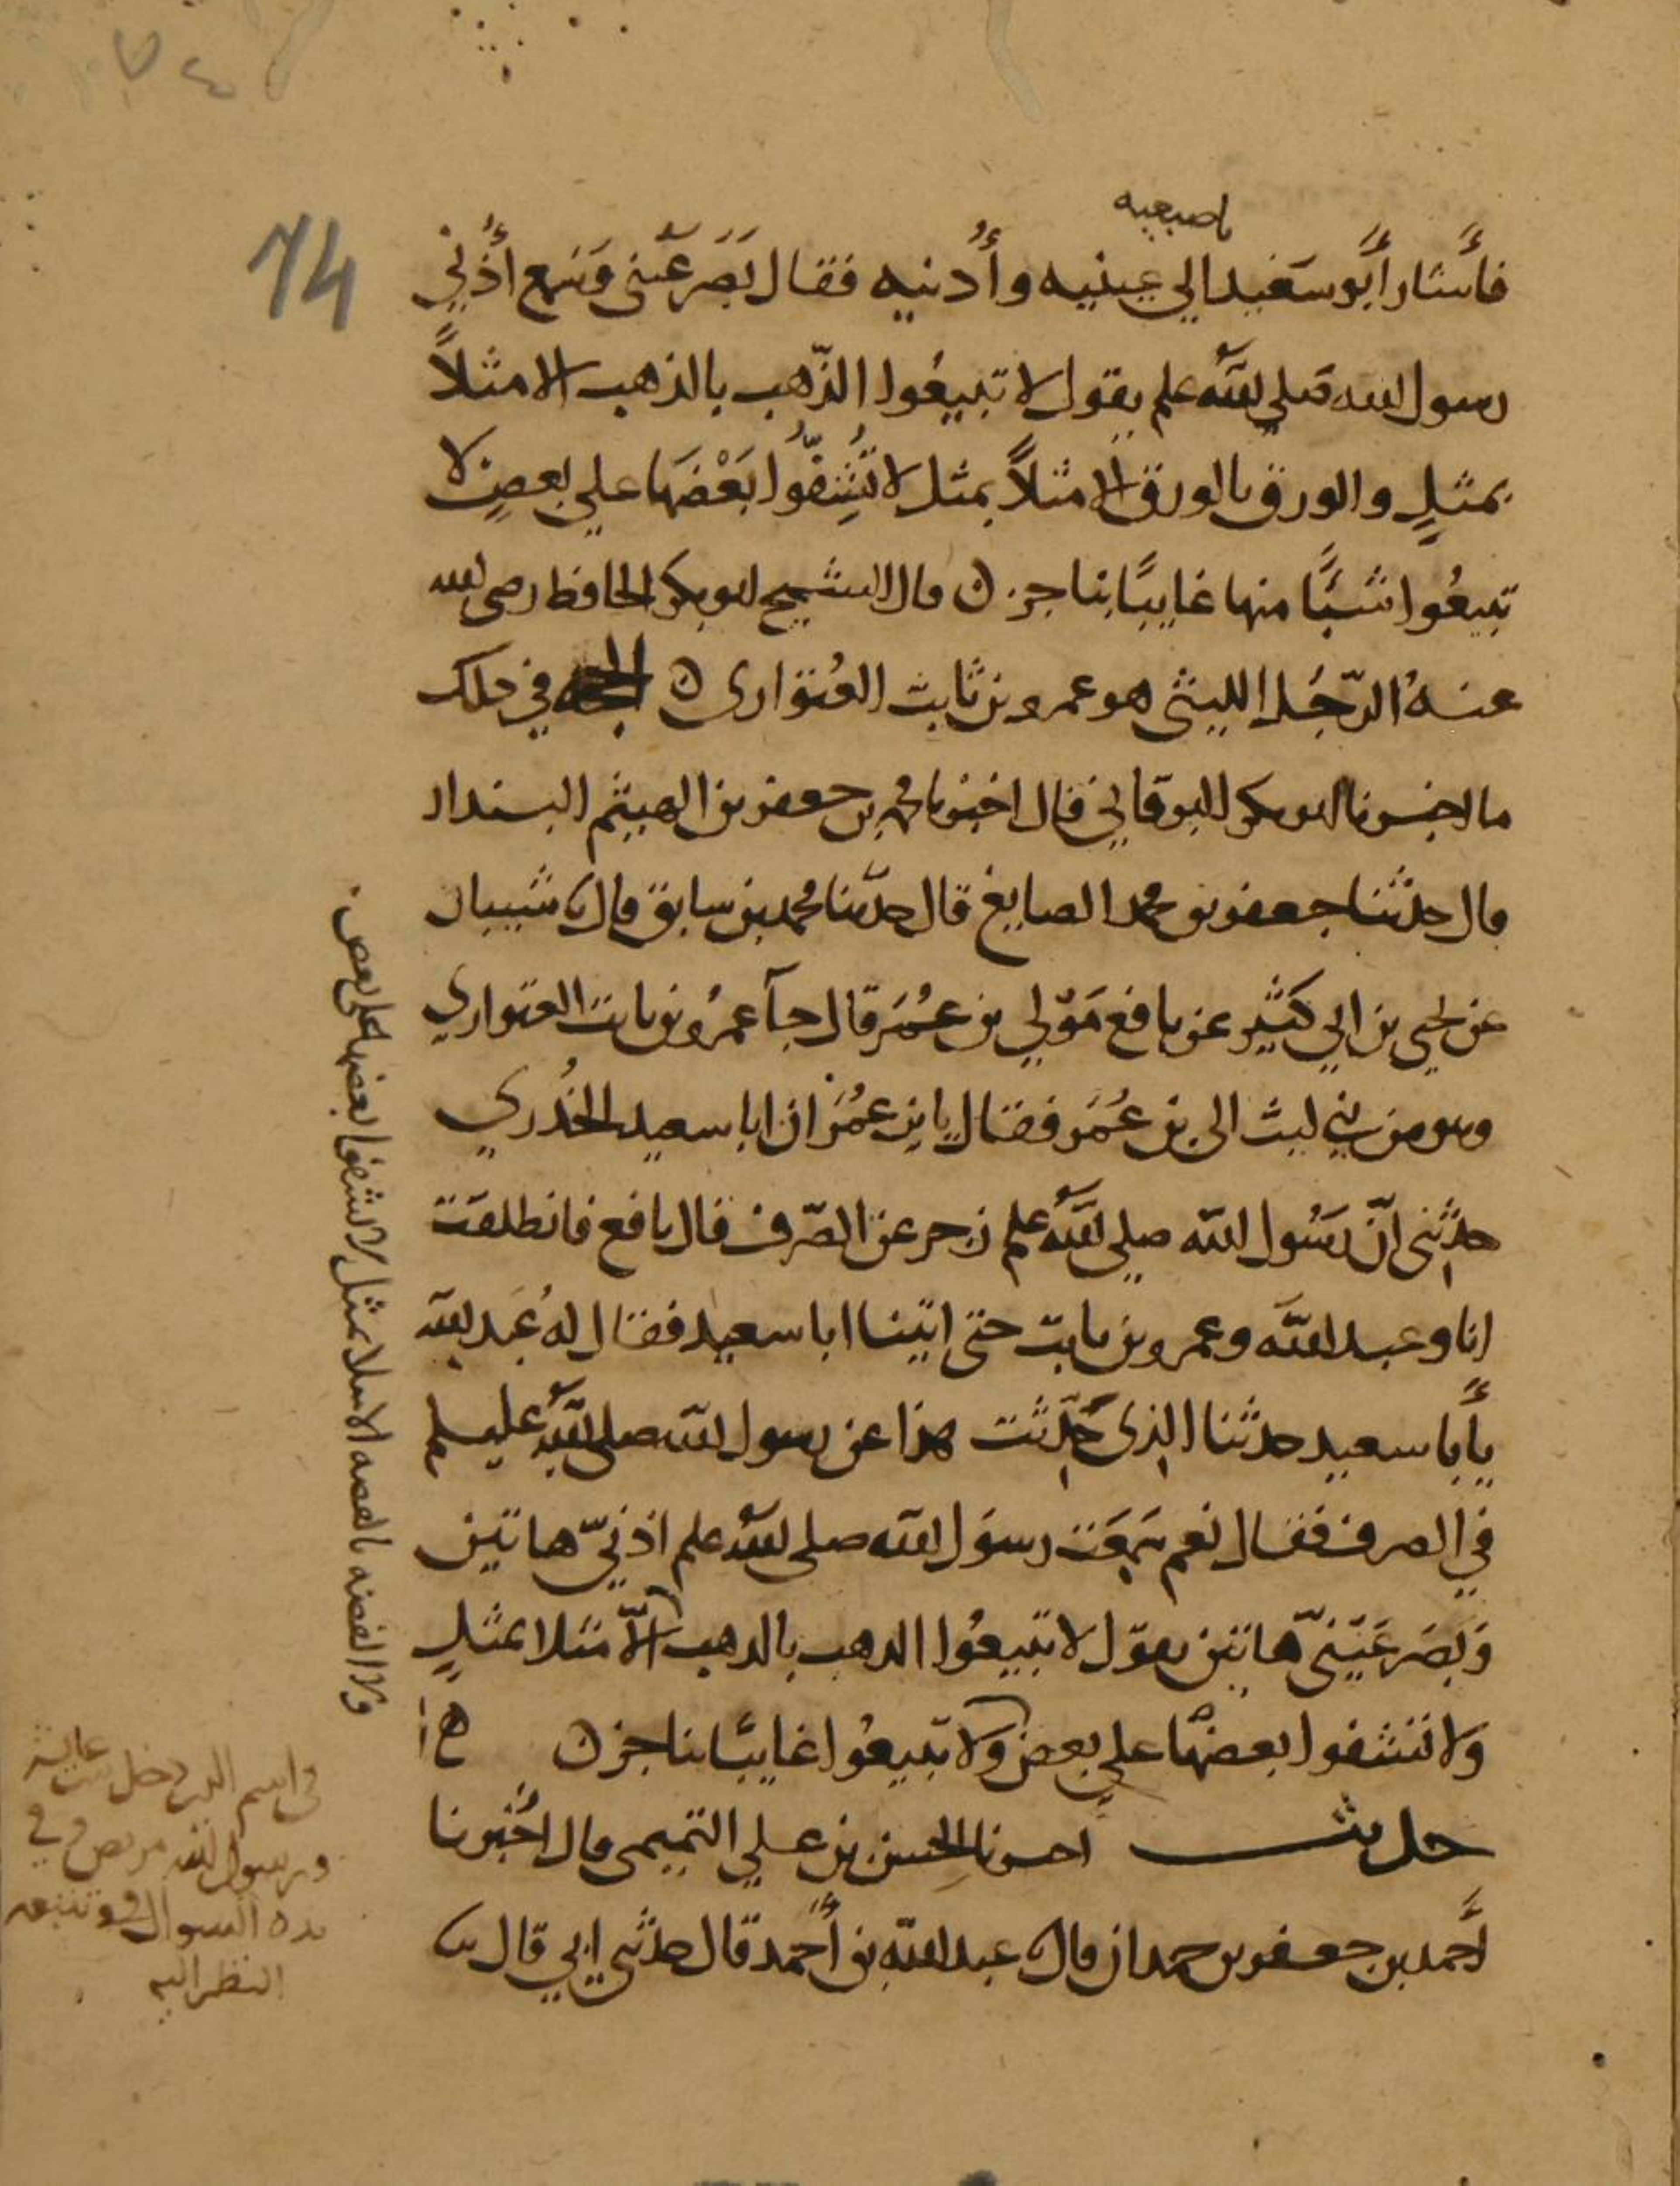 باصبعيه
فأشار أبو سعيد الي عينيه وأذنيه فقال بَصر عيني وسَمع أذني
رسول الله صلي الله علم يقول لا تبيعُوا الذّهب بالذهب الا مثلاً
بمثلٍ والورق بالورق الا مثلاً بمثل لا تُشِفّوُا بَعْضَها علي بعضٍ لا
تبيعُوا شيئًا منها غايبًا بناجز ن قال الشيخ ابو بكر الحافظ رضي الله
عنهُ الرّجُل الليثي هو عمرو بن ثابت العُتواري ن الحجه في ذلك
ما اخبرنا ابو بكر البرقاني قال اخبرنا محمد بن جعفر بن الهيثم البندار
قال حدثنا جعفر بن محمد الصايغ قال حدّثنا محمد بن سابق قال نا شيبان
عن يحيى بن ابي كَثير عن نافع مَوْلي بن عُمَر قال جآ عمرُو بن ثابت العتواري
وهو من بني ليث الى بن عُمَر فقال يا بن عمُرَ ان ابا سعيد الخُدري
حدثني انّ رسُول الله صلي الله علم زجر عن الصّرف قال نافع فانطلقت
انا وعبد الله وعمرو بن ثابت حتى اتينا ابا سعيد فقال لهُ عَبد الله
يأبا سعيد حدثنا الذى حَدّثت هذا عن رسول الله صلى الله عليه سلم
في الصرف فقال نعم سَمِعَت رسوَل الله صلى الله علم اذنيّ هاتين
وَبَصَر عَيَنيّ هاتين يقوَل لا تبيعُوا الذهب بالذهب الاّ مثلا بمثلٍ
وَلا تشفوا بعضهُا علي بعض وَلا تبيعوُا غايبًا بناجز ن
حديث اخبرنا الحسن بن علي التميمى قال اخبرنا
أحمد بن جعفر بن حمدان قال نا عبد الله بن أحمد قال حدثنى ابي قال نا
ولا الفضه بالفضه الا مثلا بمثل لا تشفوا بعضها على بعض
في اسم الذي دخل بيت عايشه
ورسول الله مريض وفي
يده السواك وتتبعه
النظر اليه
74